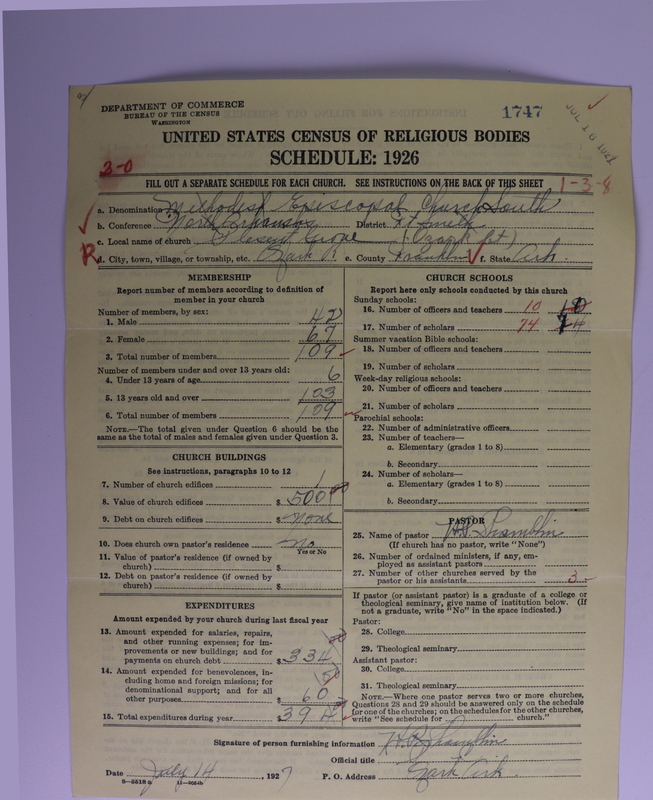 DEPARTMENT OF COMMERCE
BUREAU OF THE CENSUS
WASHINGTON
1747
UNITED STATES CENSUS OF RELIGIOUS BODIES
SCHEDULE: 1926
3-0
FILL OUT A SEPARATE SCHEDULE FOR EACH CHURCH. SEE INSTRUCTIONS ON THE BACK OF THIS SHEET
1-3-8
a. Denomination Methodist Episcopal Church South
b. Conference North Arkansas District Ft Smith
c. Local name of church Pleasant Grove (Ozark Ct)
R
d. City, town, village, or township, etc. Ozark R. e. County Franklin f. State Ark.
MEMBERSHIP
Report number of members according to definition of
member in your church
Number of members, by sex:
1. Male 42
2. Female 67
3. Total number of members 109
Number of members under and over 13 years old:
4. Under 13 years of age 6
5. 13 years old and over 103
6. Total number of members 109
NOTE.—The total given under Question 6 should be the
same as the total of males and females given under Question 3.
CHURCH BUILDINGS
See instructions, paragraphs 10 to 12
7. Number of church edifices 1
8. Value of church edifices $ 500 00
9. Debt on church edifices $ None
10. Does church own pastor's residence No
Yes or No
11. Value of pastor's residence (if owned by
church) $
12. Debt on pastor's residence (if owned by
church) $
EXPENDITURES
Amount expended by your church during last fiscal year
13. Amount expended for salaries, repairs,
and other running expenses; for im-
provements or new buildings; and for
payments on church debt $ 334
14. Amount expended for benevolences, in-
cluding home and foreign missions; for
denominational support; and for all
other purposes $ 60
15. Total expenditures during year $ 394
CHURCH SCHOOLS
Report here only schools conducted by this church
Sunday schools:
16. Number of officers and teachers 10
17. Number of scholars 74
Summer vacation Bible schools:
18. Number of officers and teachers
19. Number of scholars
Week-day religious schools:
20. Number of officers and teachers
21. Number of scholars
Parochial schools:
22. Number of administrative officers
23. Number of teachers—
a. Elementary (grades 1 to 8)
b. Secondary
24. Number of scholars—
a. Elementary (grades 1 to 8)
b. Secondary
PASTOR
25. Name of pastor
(If church has no pastor, write "None")
26. Number of ordained ministers, if any, em-
ployed as assistant pastors
27. Number of other churches served by the
pastor or his assistants 3
If pastor (or assistant pastor) is a graduate of a college or
theological seminary, give name of institution below. (If
not a graduate, write "No" in the space indicated.)
Pastor:
28. College
29. Theological seminary
Assistant pastor:
30. College
31. Theological seminary
NOTE.—Where one pastor serves two or more churches,
Questions 28 and 29 should be answered only on the schedule
for one of the churches; on the schedules for the other churches,
write "See schedule for church."
Signature of person furnishing information
Official title
Date July 14, 1927 P. O. Address Ozark Ark.
8—5518 b 11—9864b